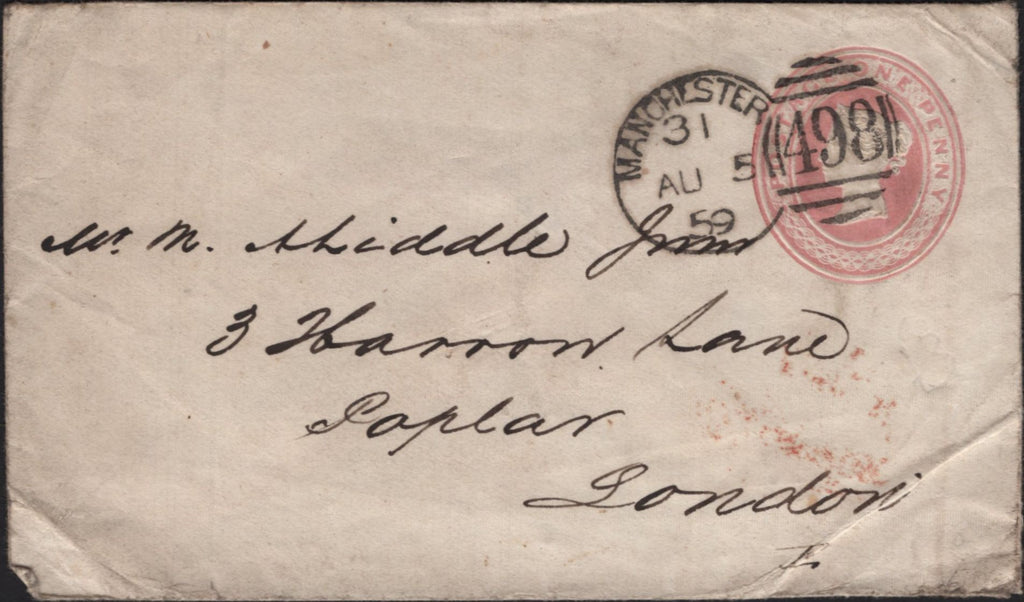 POSTAGE ONE PENNY
MANCHESTER
31
AU 5
59
498
Mr. M. Liddle Junr
3 Harrow Lane
Poplar
London